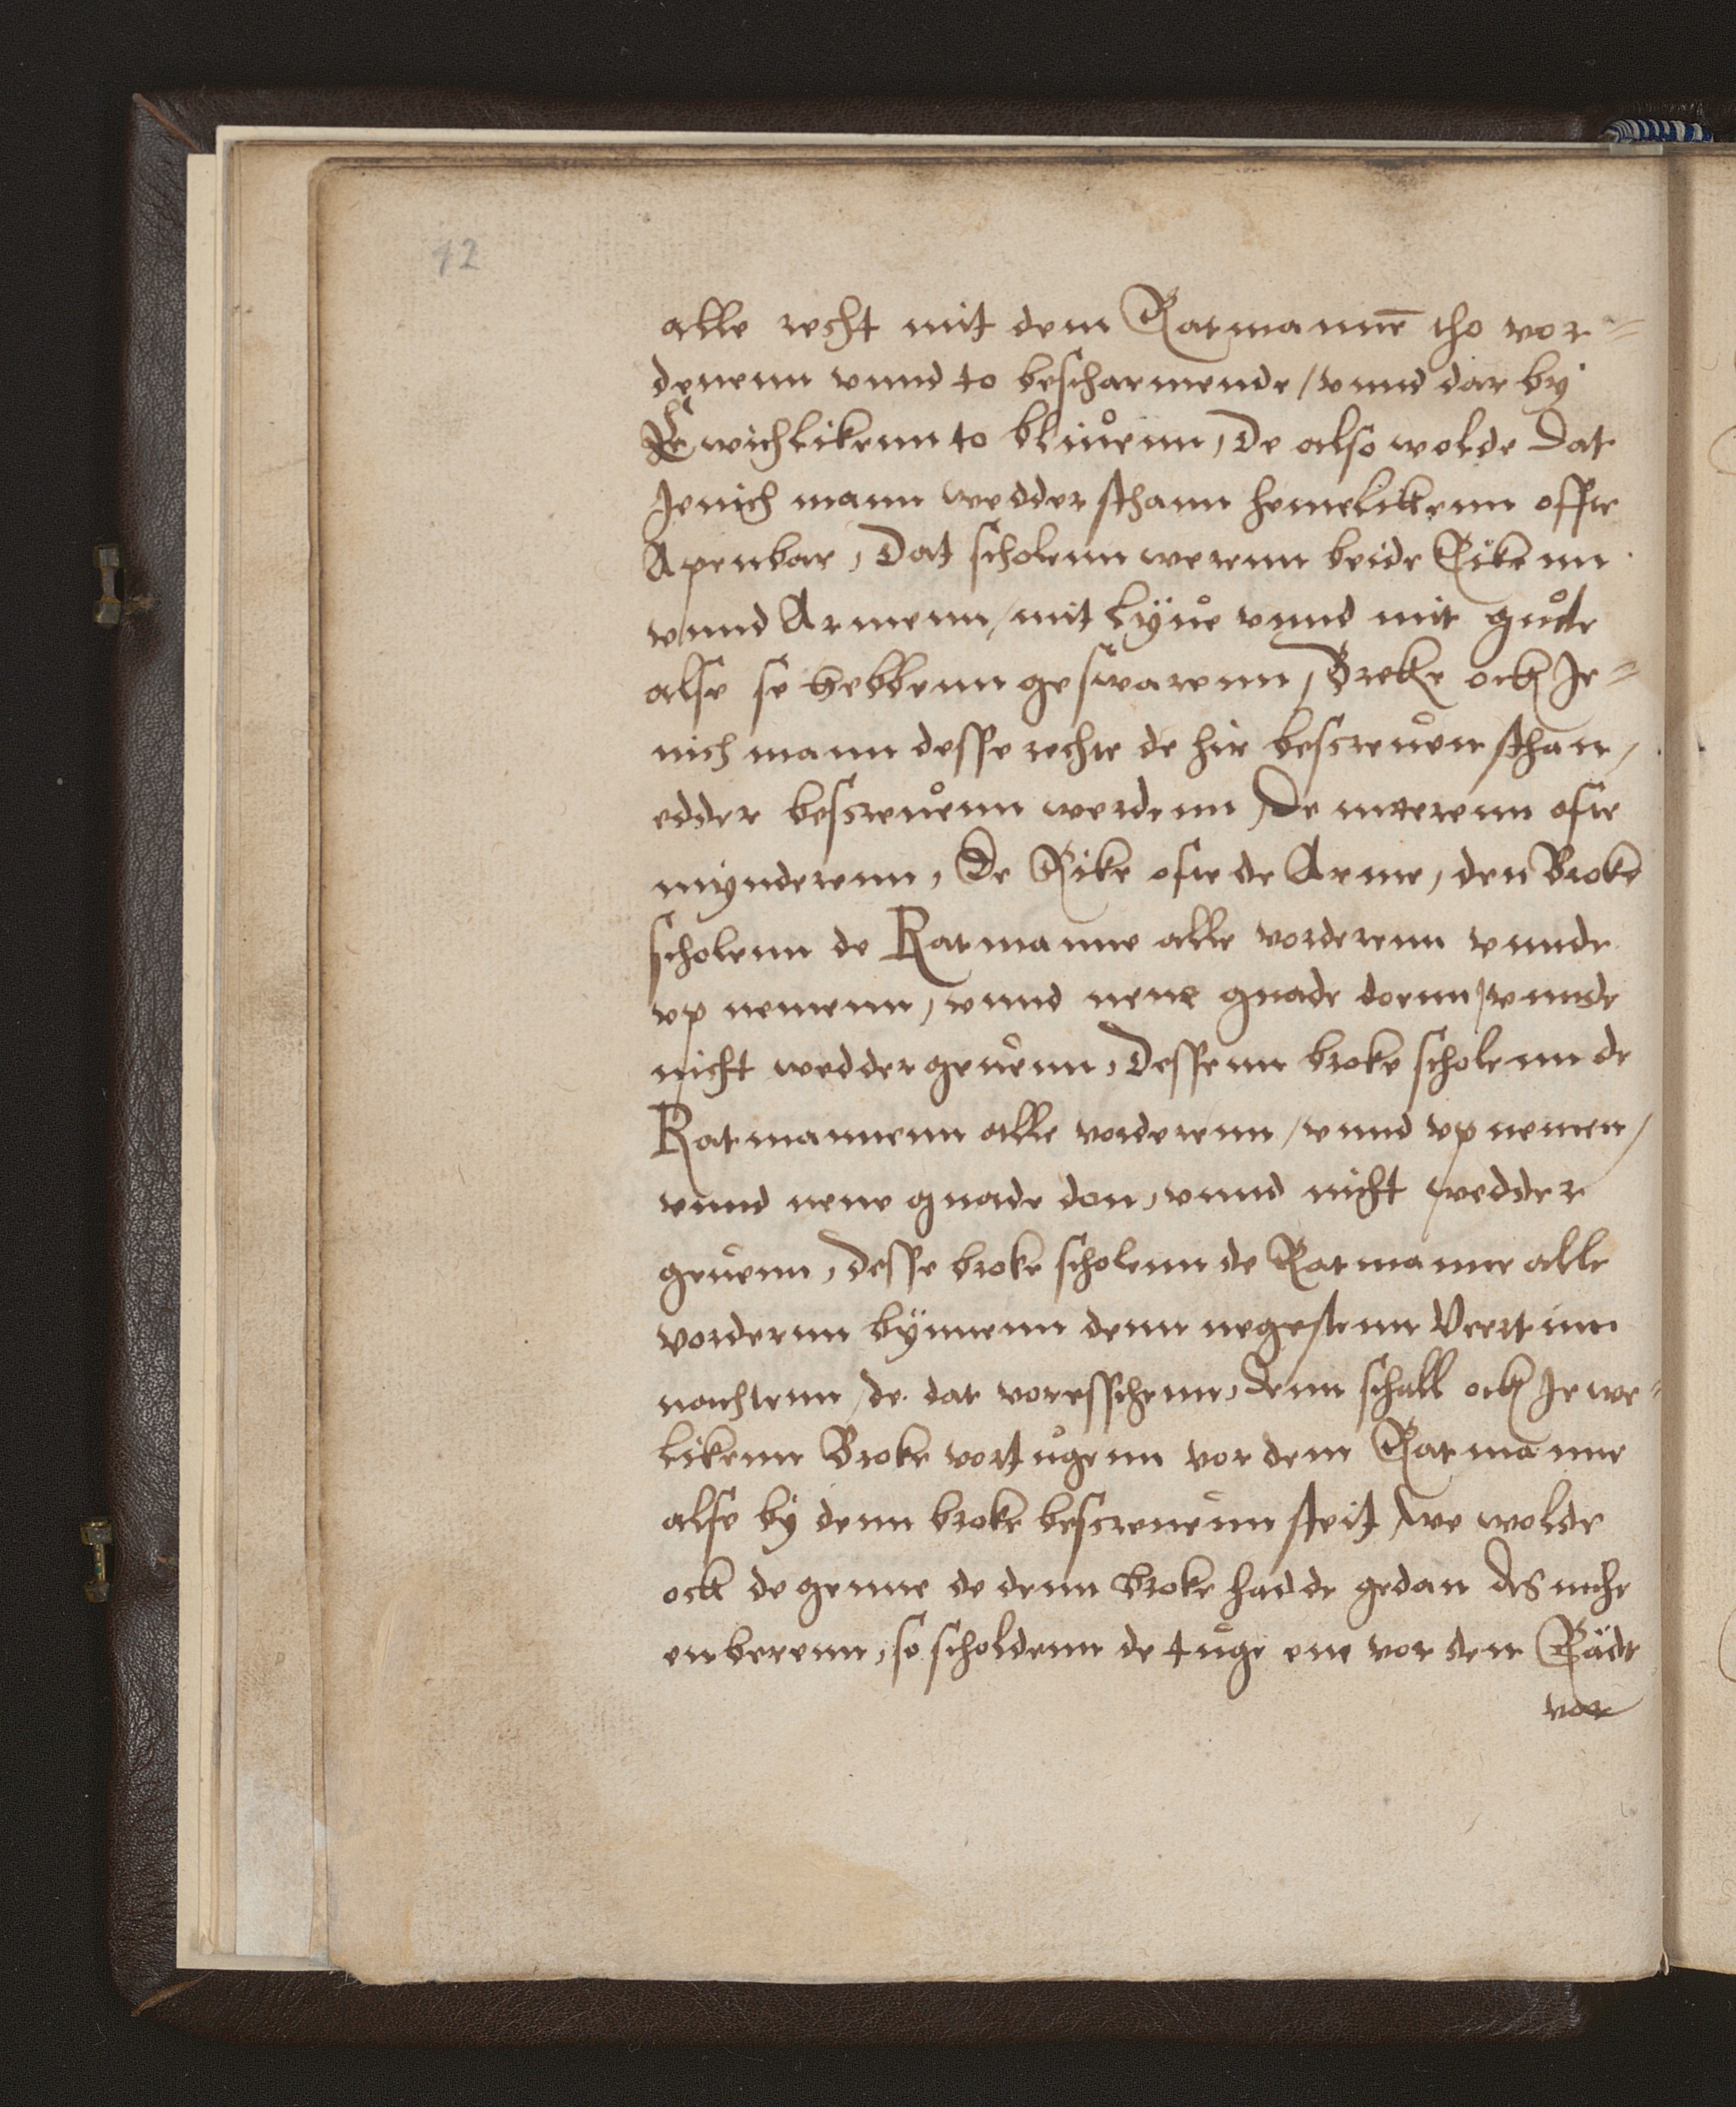 12
alle recht mit dem Ratmannē tho vor=
denenn vnnd to bescharmende / vnnd dar by
Ewichlikenn to bliuenn, De also wolde Dat
Jenich mann wedder sthann hemelikenn offte
Apenbar, Dat scholenn werenn beide Rikenn
vnnd Armenn, mit Lÿue vnnd mit gude
alse se hebbenn geswarenn, Breke ock Je=
nich mann desse rechte de hir bescreuen sthan,
edder bescreuenn werdenn, De mererenn ofte
mynderenn, De Rike ofte de Arme, den Broke
scholenn de Ratmanne alle vorderenn vnnde
vp nemenn, vnnd nene gnade doenn, vnnde
nicht wedder geuenn, Dessenn broke scholenn de
Ratmannenn alle vorderenn / vnnd vp nemen,
vnnd nene gnade don, vnnd nicht wedder
geuenn, Desse broke scholenn de Ratmanne alle
vorderenn bÿnnenn denn negestenn Veertinn
nachtenn, de dat voresschenn, Denn schall ock Jewe=
likenn Broke vortugenn vor dem Ratmanne
alse by denn broke bescreuenn steit, we wolde
ock de genne de denn broke hadde gedan des nicht
enberenn, so scholdenn de tuge ene vor den Rade
vor